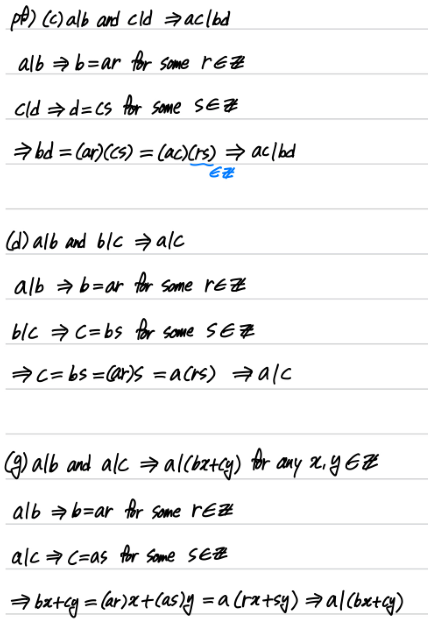 pf) (c) a|b and c|d ⇒ ac|bd
a|b ⇒ b=ar for some r∈ℤ
c|d ⇒ d=cs for some s∈ℤ
⇒ bd = (ar)(cs) = (ac)(rs) ⇒ ac|bd
∈ℤ
(d) a|b and b|c ⇒ a|c
a|b ⇒ b=ar for some r∈ℤ
b|c ⇒ c=bs for some s∈ℤ
⇒ c=bs=(ar)s = a(rs) ⇒ a|c
(g) a|b and a|c ⇒ a|(bx+cy) for any x,y∈ℤ
a|b ⇒ b=ar for some r∈ℤ
a|c ⇒ c=as for some s∈ℤ
⇒ bx+cy = (ar)x+(as)y = a(rx+sy) ⇒ a|(bx+cy)